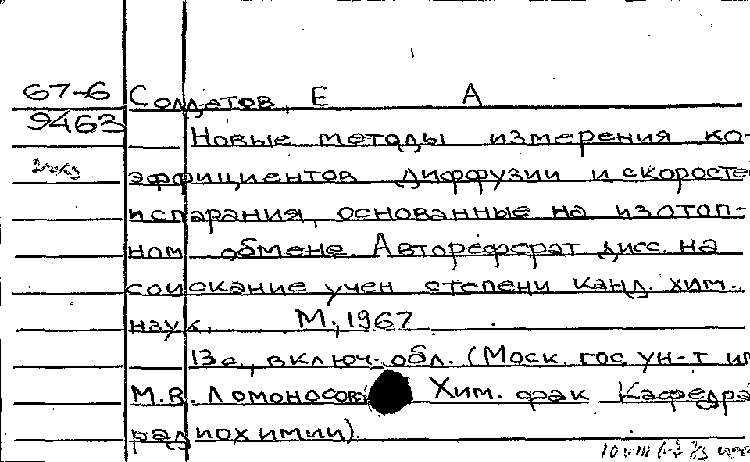 67-6 Солдатов, Е А
9463 Новые методы измерения ко-
эффициентов диффузии и скоросте
испарения, основанные на изотоп-
ном обмене. Автореферат дисс. на
соискание учен степени канд. хим.
наук. М., 1967
13с., включ. обл. (Моск. гос ун-т им
М.В. Ломоносова Хим. фак Кафедра
радиохимии)